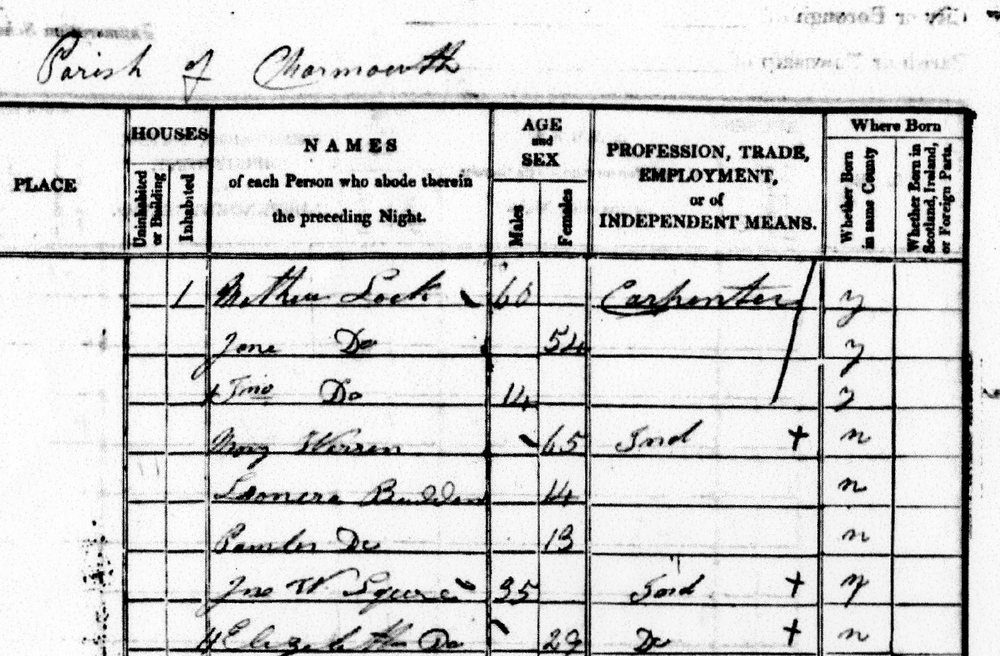 Parish of Charmouth
HOUSES
NAMES
AGE and SEX
PROFESSION, TRADE, EMPLOYMENT, or of INDEPENDENT MEANS.
Where Born
PLACE
Uninhabited or Building
Inhabited
of each Person who abode therein the preceding Night.
Males
Females
Whether Born in same County
Whether Born in Scotland, Ireland, or Foreign Parts.
1 Mathew Lock 60 Carpenter y
Jane Do 54 y
Jno Do 14 y
Mary Warren 65 Ind n
Budden 14 n
Do 13 n
Jno W. Squire 35 Ind y
Elizabeth Do 29 Do n